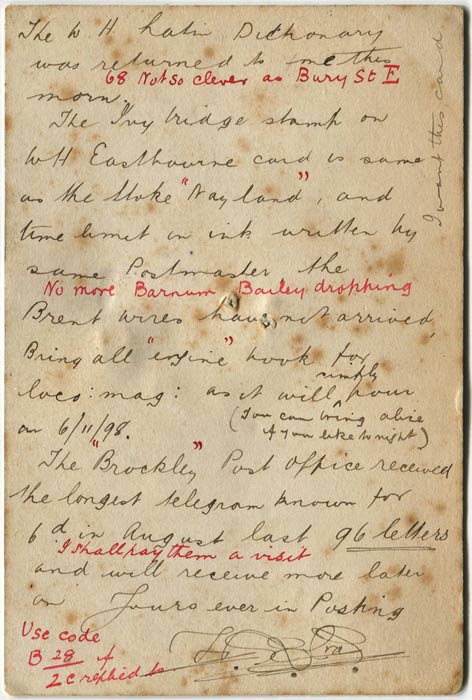 The W. H. Latin Dictionary
was returned to me this
68 Not so clever as Bury St E
morn.
The Ivybridge stamp on
WH Eastbourne card is same
as the Stoke "Nayland", and
time limit in ink written by
same Postmaster the
No more Barnum Bailey dropping
Brent wires have not arrived,
Bring all "engine" book for
loco: mag: as it will simply pour
on 6/11/98. (You can bring alice
if you like to night)
The "Brockley" Post office received
the longest telegram known for
6d in August last 96 letters
I shall pay them a visit
and will receive more later
on Yours ever in Posting
Use code
B 28 of
2 c replied to
I want this card